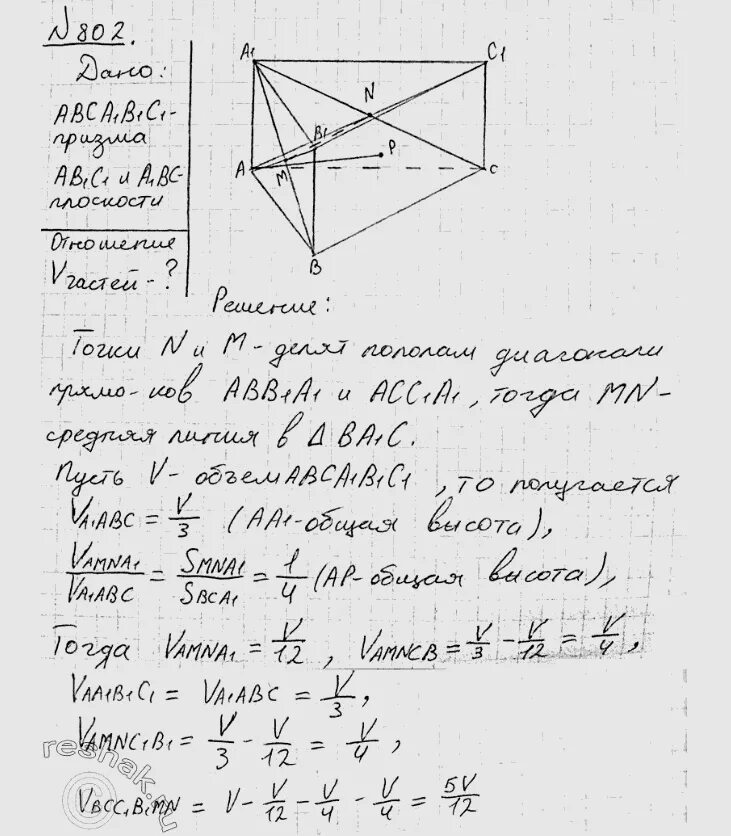 N802.
Дано:
ABCA₁B₁C₁-
призма
AB₁C₁ и A₁BC-
плоскости
Отношение
Vчастей - ?
A₁
C₁
N
B₁
P
A
M
C
B
Решение:
Точки N и M - делят пополам диагонали
прямо-ков ABB₁A₁ и ACC₁A₁, тогда MN-
средняя линия в ΔBA₁C.
Пусть V - объем ABCA₁B₁C₁, то получается
VA₁ABC = V/3 (AA₁-общая высота),
VAMNA₁/VA₁ABC = SMNA₁/SBCA₁ = 1/4 (AP-общая высота),
Тогда VAMNA₁ = V/12, VAMNCB = V/3 - V/12 = V/4,
VAA₁B₁C₁ = VA₁ABC = V/3,
VAMNC₁B₁ = V/3 - V/12 = V/4,
VBCC₁B₁MN = V - V/12 - V/4 - V/4 = 5V/12
reshak.ru